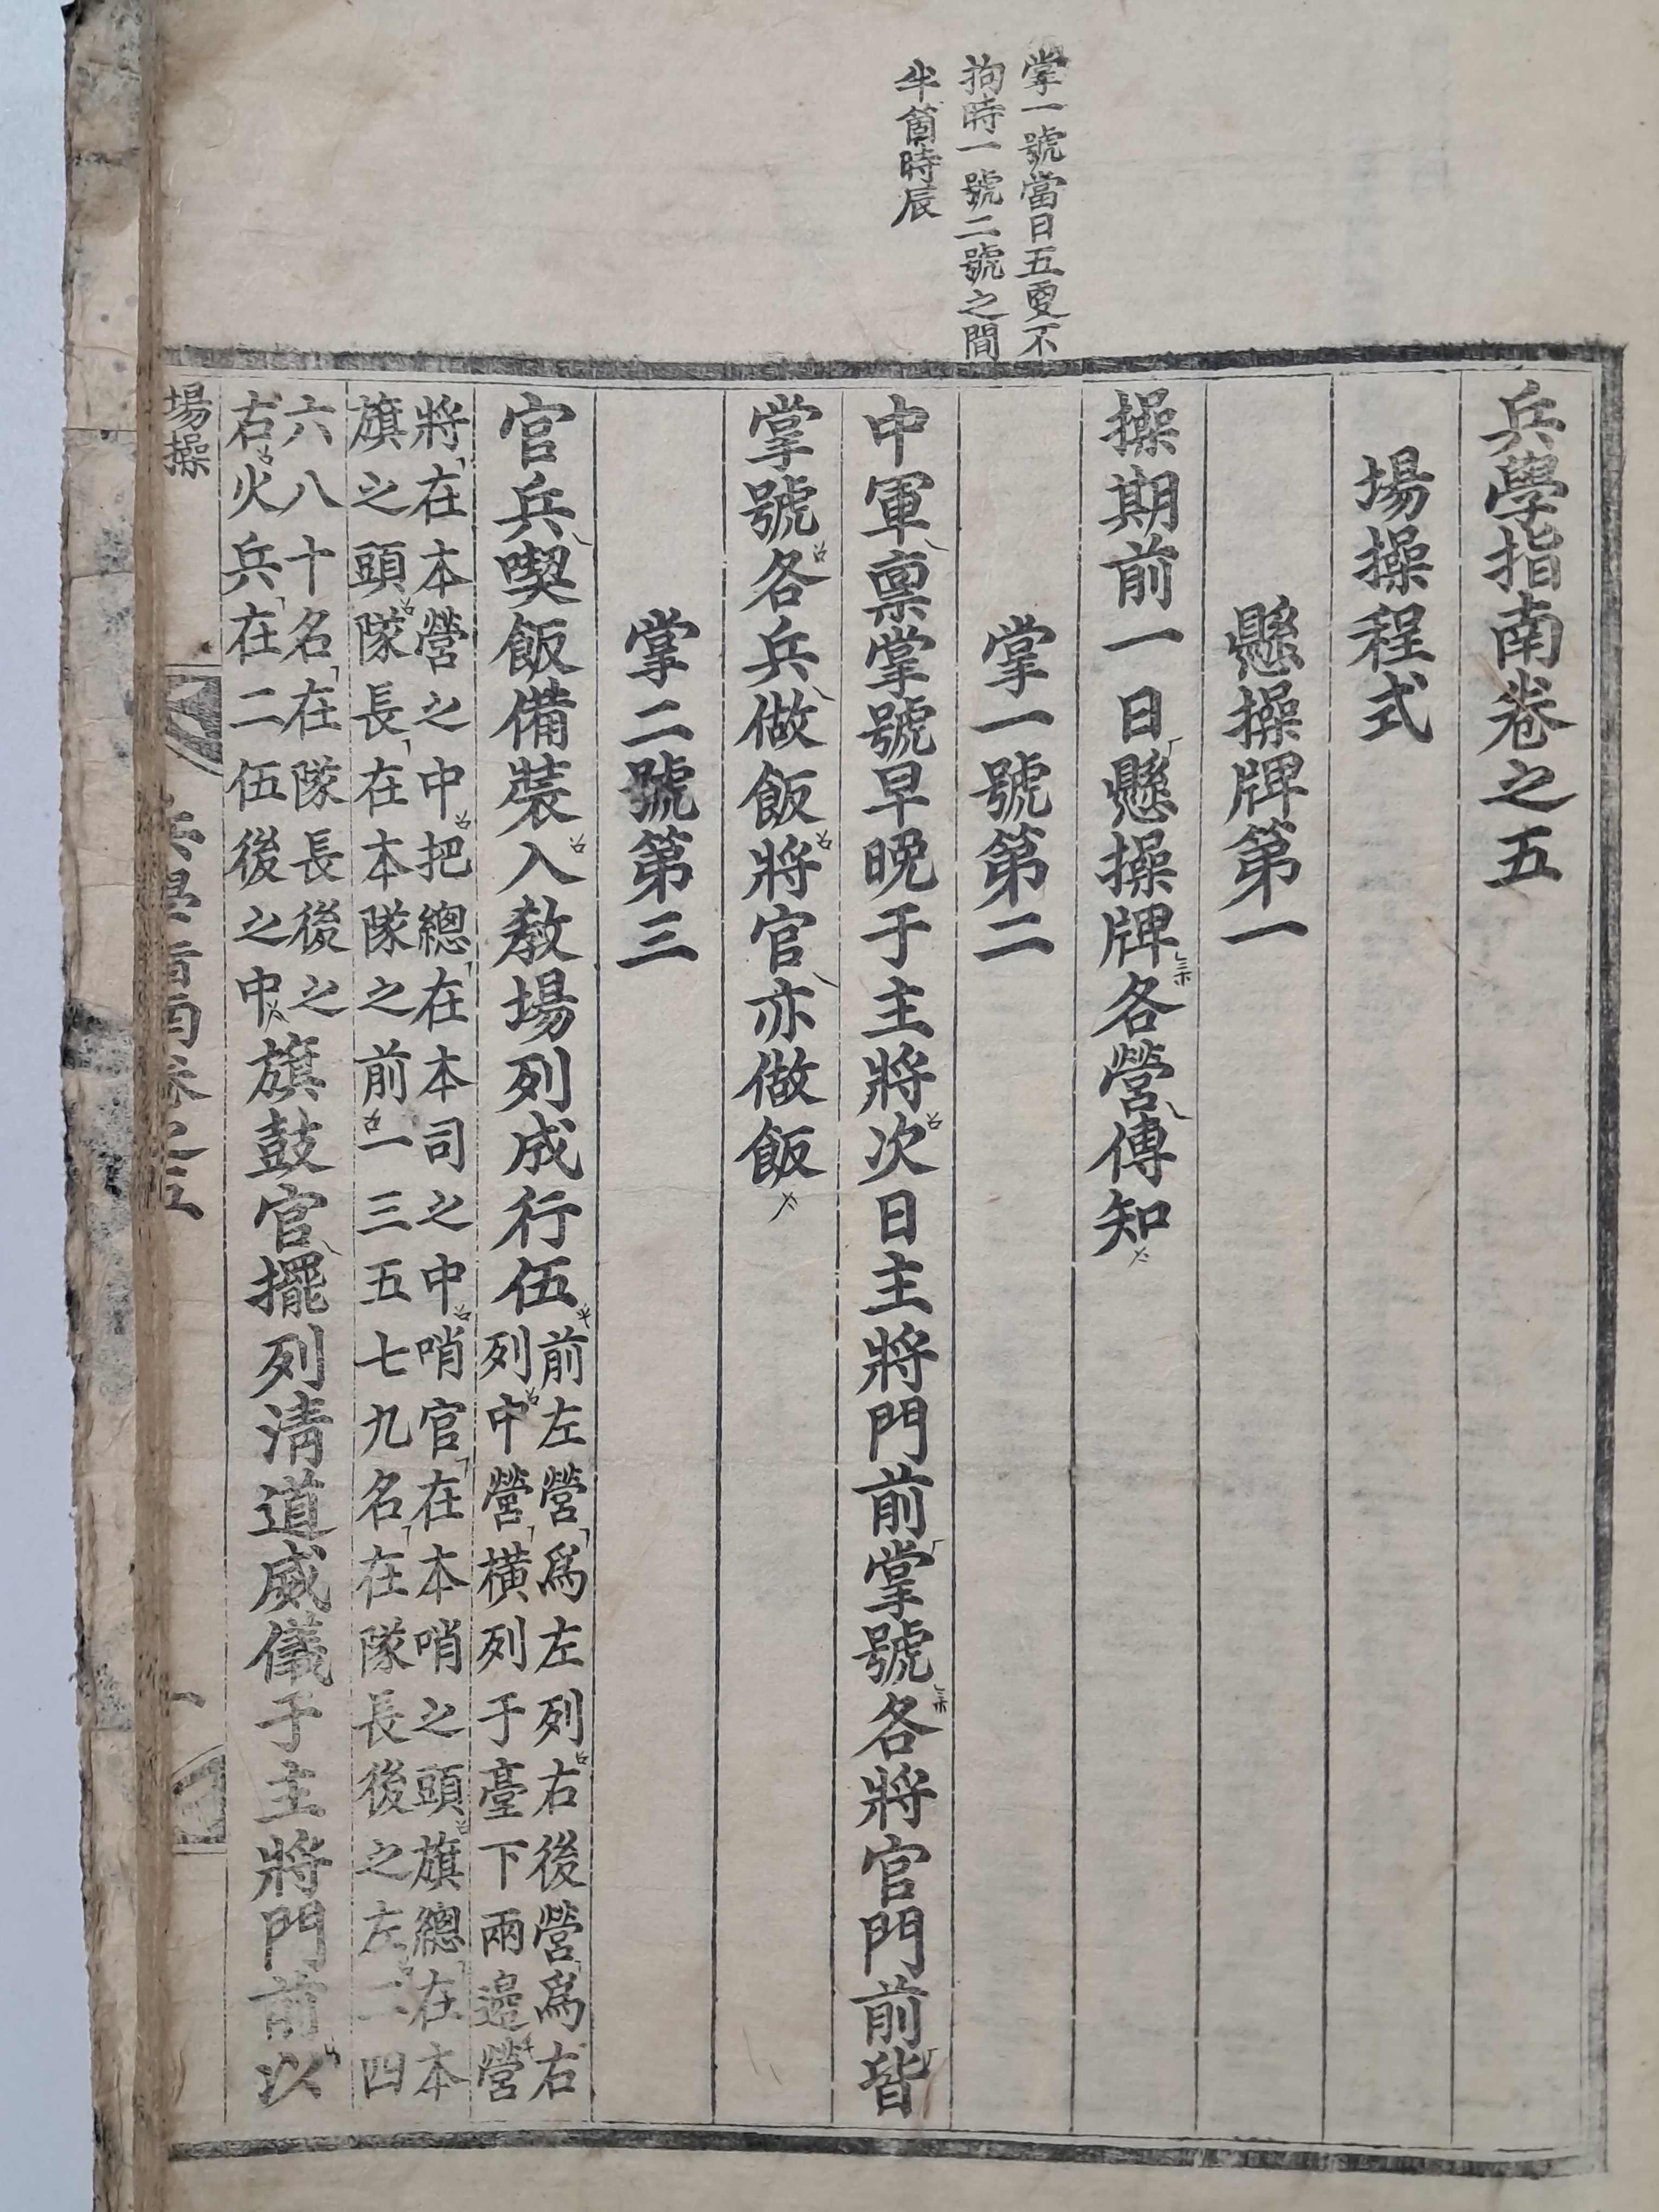 掌一號當日五更不
拘時一號二號之間
半箇時辰
兵學指南卷之五
場操程式
懸操牌第一
操期前一日懸操牌各營傳知
掌一號第二
中軍稟掌號早晚于主將次日主將門前掌號各將官門前皆
掌號各兵做飯將官亦做飯
掌二號第三
官兵喫飯備裝入教場列成行伍
前左營爲左列右後營爲右
列中營橫列于臺下兩邊營
將在本營之中把總在本司之中哨官在本哨之頭旗總在本
旗之頭隊長在本隊之前一三五七九名在隊長後之左二四
六八十名在隊長後之
右火兵在二伍後之中
旗鼓官擺列淸道威儀于主將門前以
場操